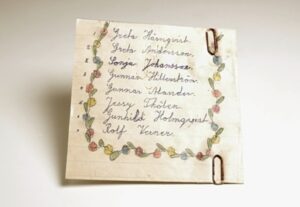 Greta Hörnqvist.
Greta Andersson.
Sonja Johansson.
Gunnar
Gunnar Alander.
Jessy Thörn.
Gunhild Holmqvist.
Rolf Verner.